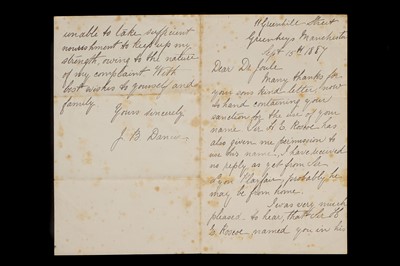 Greenheys Manchester
15th 1887
Dear Dr Joule
Many thanks for
your sons kind letter, now
to hand containing your
sanction for the use of your
name Sir H E Roscoe has
also given me permission to
use his name, I have received
no reply as yet from Sir
Lyon Playfair, probably he
may be from home.
I was very much
pleased to hear, that Sir H
E. Roscoe, named you in his
unable to take sufficient
nourishment to keep up my
strength, owing to the nature
of my complaint With
best wishes to yourself and
family.
Yours sincerely
J B Dancer